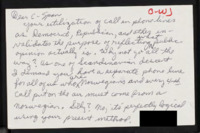 O-WJ
Dear C-Span
your utilization of call in phone lines
as Democrat, Republican, and other in-
validates the purpose of reflecting public
opinion actually is. Why not go all the
way? As one of Scandinavian descent
I demand you have a separate phone line
for all of us who are Norwegians and every
call put on the air must come from a
Norwegian. Silly? No, it's perfectly logical
using your present method.